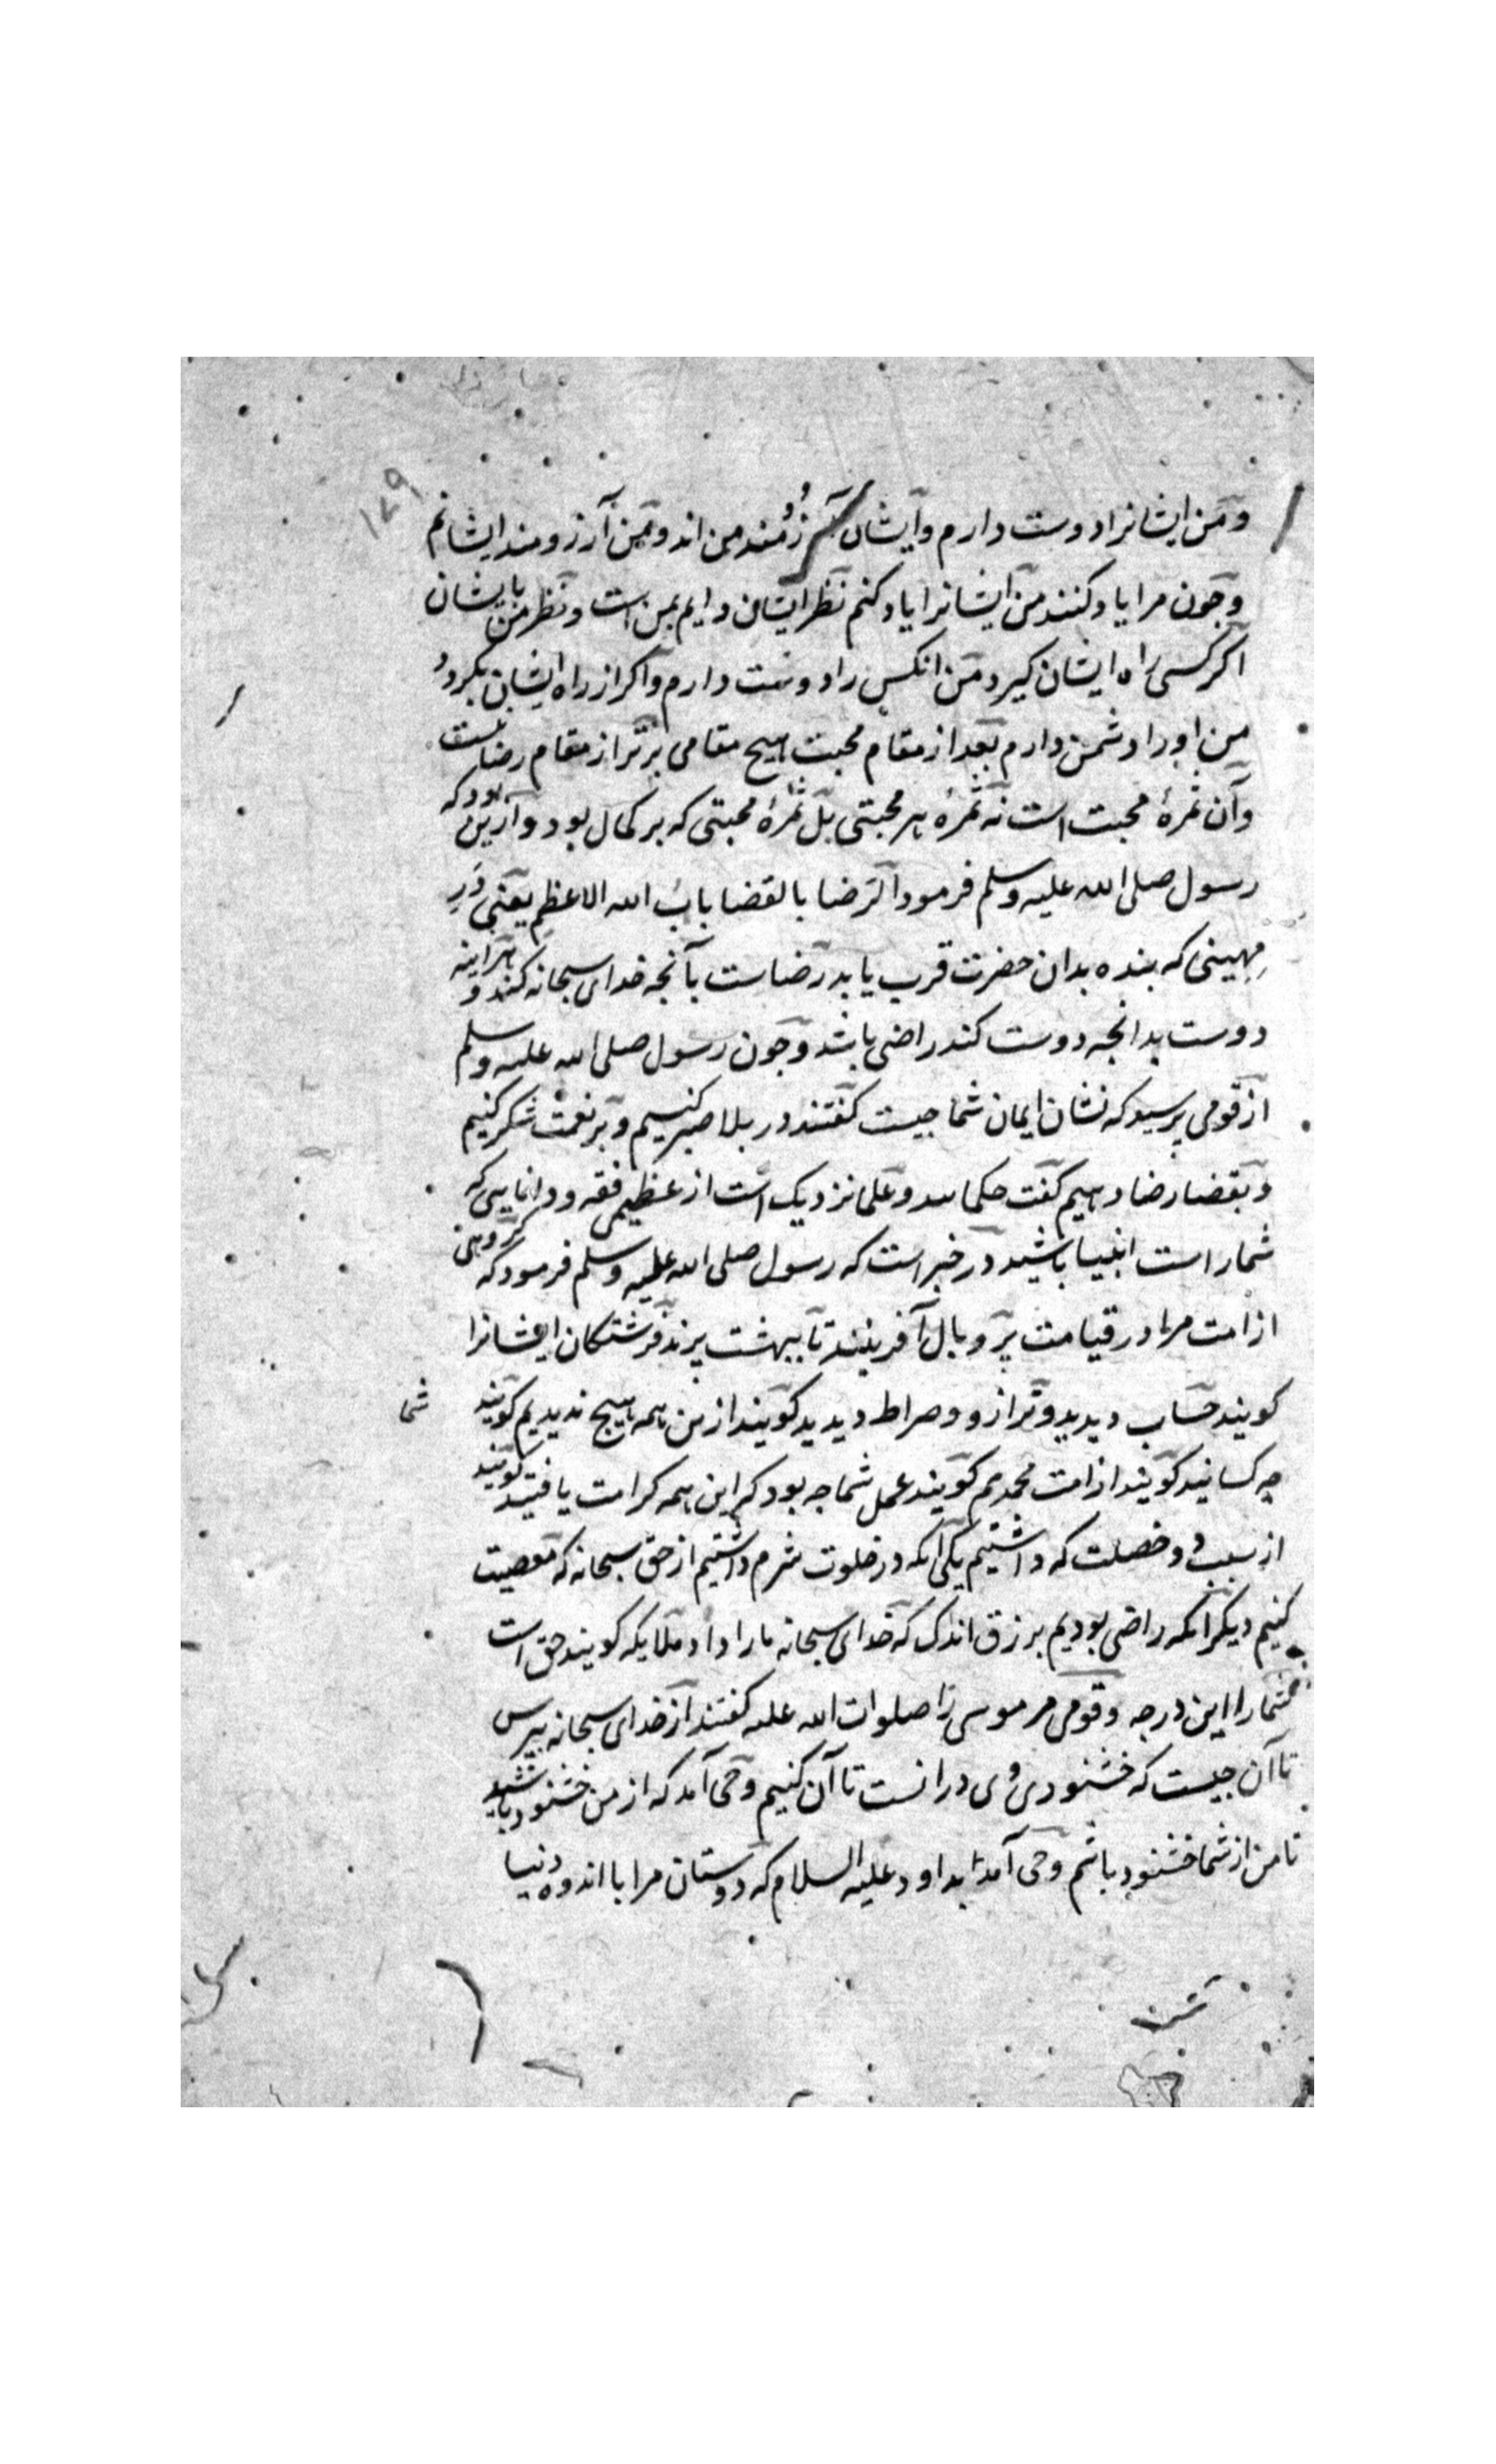 ۱۷۹
و من ایشانرا دوست دارم و ایشان آرزومند من اند و من آرزومند ایشانم
و جون مرا یاد کنند من ایشانرا یاد کنم نظر ایشان دایم بمن است و نظر من بایشان
اکر کسی راه ایشان کیرد من انکس را دوست دارم و اکر از راه ایشان بکردد
من او را دشمن دارم بعد از مقام محبت هیج مقامی برتر از مقام رضا نیست
و آن ثمرهٔ محبت است نه ثمرهٔ هر محبتی بل ثمرهٔ محبتی که بر کمال بود و ازین بود که
رسول صلی الله علیه وسلم فرمود الرضا بالقضا باب الله الاعظم یعنی در
مهینی که بنده بدان حضرت قرب یابد رضاست بآنجه خدای سبحانه کند و هراینه
دوست بدانجه دوست کند راضی باشد و جون رسول صلی الله علیه وسلم
از قومی برسید که نشان ایمان شما جیست کفتند در بلا صبر کنیم و بر نعمت شکر کنیم
و بقضا رضا دهیم کفت حکما اند و علما نزدیک است از عظیمی فقه و دانایی که
شمار است انبیا باشید در خبر است که رسول صلی الله علیه وسلم فرمود که کروهی
از امت مرا در قیامت بر و بال آفرینند تا ببهشت برند فرشتکان ایشانرا
کویند حساب دیدید و ترازو و صراط دیدید کویند ازین همه هیج ندیدیم کویند
شما
جه کسانید کویند از امت محمدیم کویند عمل شما جه بود که این همه کرامت یافتید کویند
از سبب دو خصلت که داشتیم یکی انکه در خلوت شرم داشتیم از حق سبحانه که معصیت
کنیم دیکر انکه راضی بودیم بر رزق اندک که خدای سبحانه ما را داد ملایکه کویند حق است
شما را این درجه و قومی مر موسی را صلوات الله علیه کفتند از خدای سبحانه ببرس
تا آن جیست که خشنودی وی در انست تا آن کنیم وحی آمد که از من خشنود باشید
تا من از شما خشنود باشم وحی آمد بداود علیه السلام که دوستان مرا با اندوه دنیا